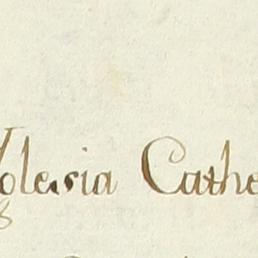 Yglesia Cathe